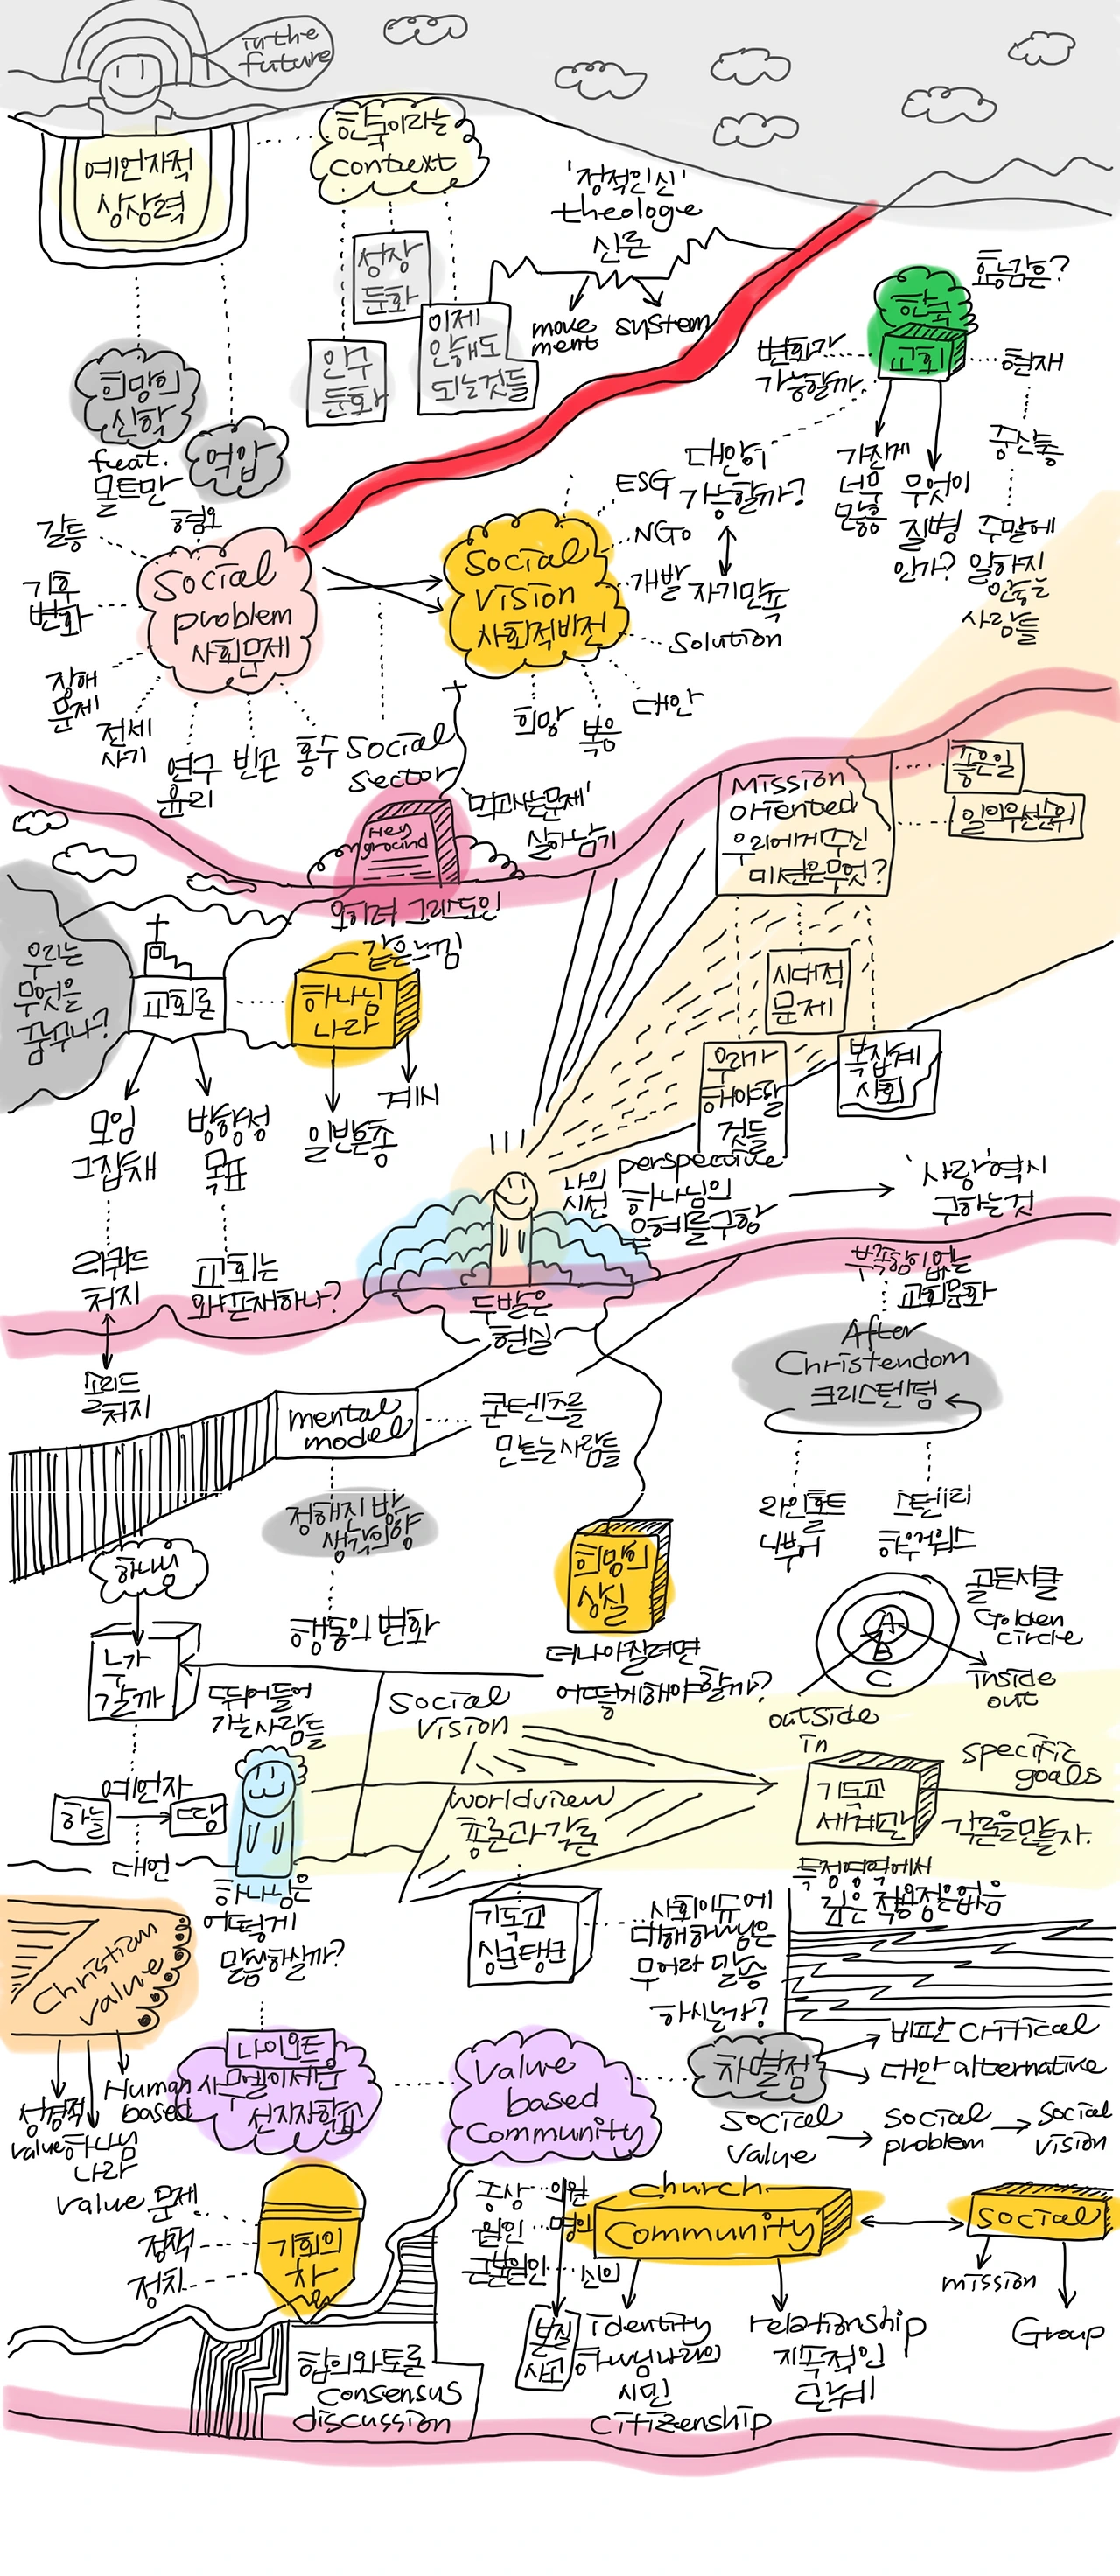 in the
future
예언자적
상상력
한국이라는
context
'정적인신'
theologie
신론
move
ment
system
성장
둔화
인구
둔화
이제
안해도
되는것들
효능감은?
한국
교회
변화가
가능할까.
현재
중산층
주말에
일하지
않는
사람들
가진게
너무
많음
무엇이
질병
인가?
희망의
신학
feat.
몰트만
억압
대안이
가능할까?
자기만족
ESG
NGO
개발
Solution
대안
복음
희망
갈등
혐오
기후
변화
장해
문제
전세
사기
연구
윤리
빈곤
홍수
Social
problem
사회문제
Social
vision
사회적비전
Social
sector
Hey
ground
'먹고사는문제'
살아남기
오히려 그레도인
같은느낌
Mission
oriented
우리에게주신
미션은무엇?
좋은일
일의우선순위
시대적
문제
우리가
해야할
것들
복잡계
사회
우리는
무엇을
꿈꾸나?
교회론
하나님
나라
모임
그잡채
방향성
목표
일반은총
계시
리퀴드
처치
솔리드
처치
교회는
왜존재하나?
나의
시선
perspective
하나님의
은혜를구함
'사랑'역시
구하는것
두발은
현실
부족함이없는
교회문화
After
Christendom
크리스텐덤
라인홀드
니부어
스탠리
하우어워스
mental
model
콘텐츠를
만드는사람들
정해진 방
생각의양
행동의 변화
희망의
상실
더나아질려면
어떻게해야할까?
골든서클
Golden
circle
A
B
C
inside
out
outside
in
하나님
누가
갈까
뛰어들어
가는사람들
예언자
하늘
땅
대언
하나님은
어떻게
말씀하실까?
Social
vision
worldview
총론과각론
기독교
세계관
specific
goals
각론을만들자.
특정영역에서
깊은 적용점은없음
기독교
싱크탱크
사회이슈에
대해하나님은
무어라 말씀
하시는가?
Christian
value
성경적
value
하나님
나라
Human
based
나이오트
사무엘이세운
선지자학교
value
based
Community
차별점
비판 critical
대안 alternative
Social
value
Social
problem
Social
vision
value 문제
정책
정치
기회의
창
합의와토론
consensus
discussion
증상
의원
원인
명의
근본원인
신의
본질
사고
church
Community
identity
하나님나라의
시민
citizenship
relationship
지속적인
관계
Social
mission
Group